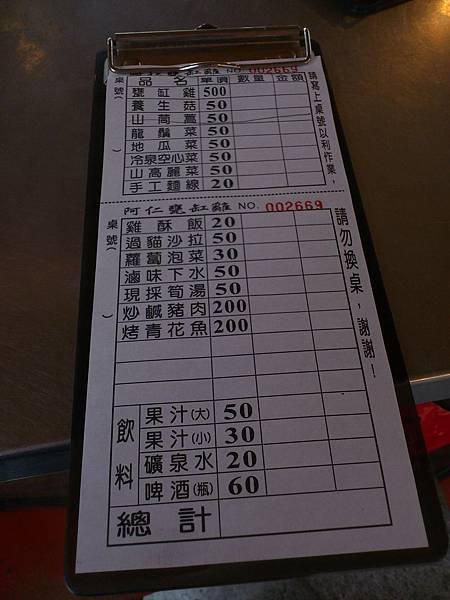 阿仁甕缸雞 NO. 002669
桌號（ ）
品名 單價 數量 金額
甕缸雞 500
養生菇 50
山茼蒿 50
龍鬚菜 50
地瓜菜 50
冷泉空心菜 50
山高麗菜 50
手工麵線 20
請寫上桌號以利作業，
阿仁甕缸雞 NO. 002669
桌號（ ）
雞酥飯 20
過貓沙拉 50
蘿蔔泡菜 30
滷味下水 50
現採筍湯 50
炒鹹豬肉 200
烤青花魚 200
飲料
果汁(大) 50
果汁(小) 30
礦泉水 20
啤酒(瓶) 60
總計
請勿換桌，謝謝！